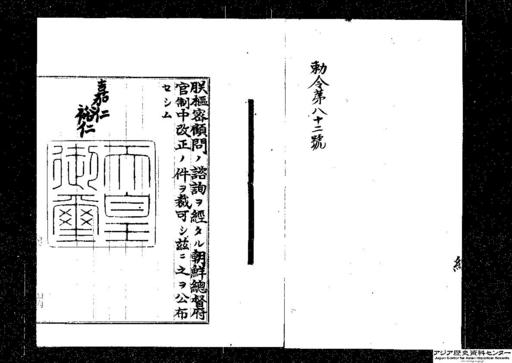 勅令第八十二號
朕樞密顧問ノ諮詢ヲ經タル朝鮮總督府
官制中改正ノ件ヲ裁可シ茲ニ之ヲ公布
セシム
嘉仁
裕仁
天皇
御璽
アジア歴史資料センター
Japan Center for Asian Historical Records